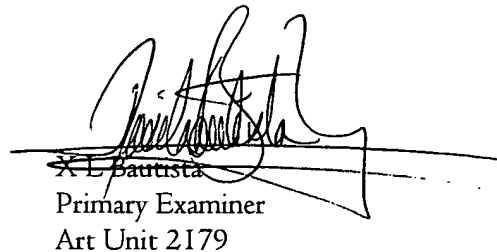 X L Bautista
Primary Examiner
Art Unit 2179